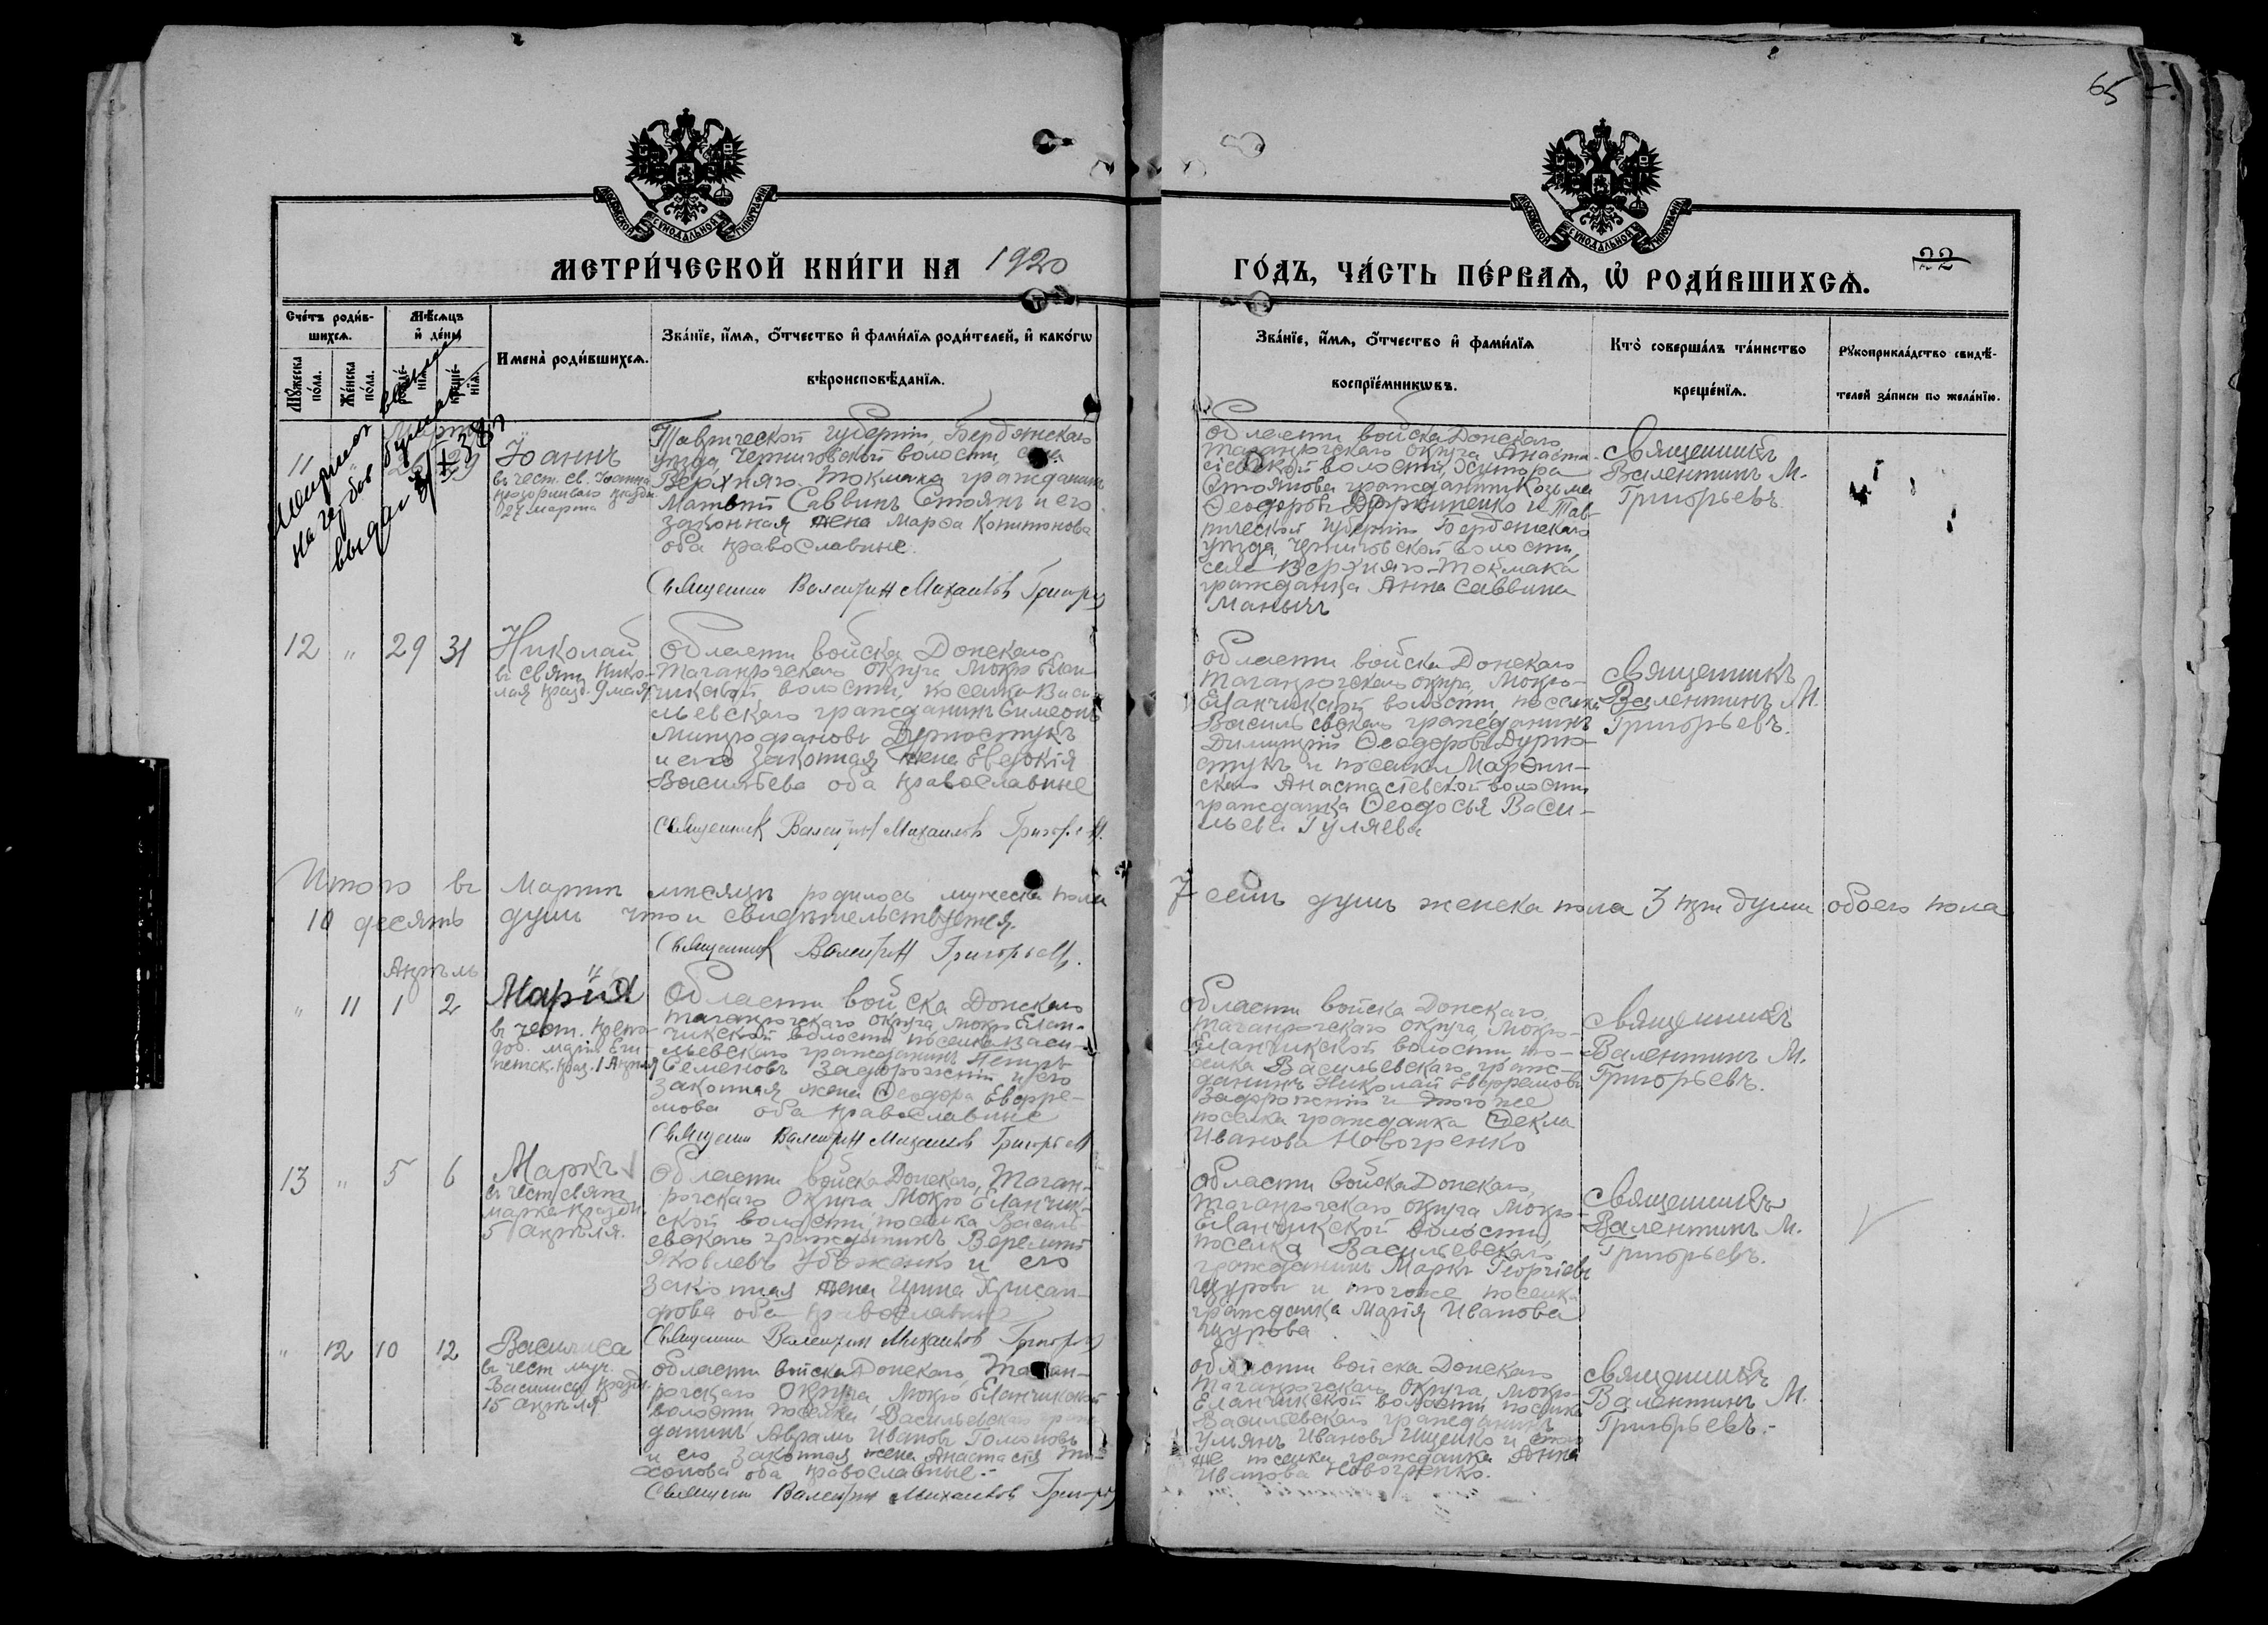 65
МОСКОВСКОЙ СѴНОДАЛЬНОЙ ТИПОГРАФІИ
МОСКОВСКОЙ СѴНОДАЛЬНОЙ ТИПОГРАФІИ
МЕТРИ́ЧЕСКОЙ КНИ́ГИ НА 1920
ГО́ДЪ, ЧА́СТЬ ПЕ́РВАѦ, Ѡ҆ РОДИ́ВШИХСѦ.
22
Сче́тъ роди́в-
шихсѧ.
Мѣ́сѧцъ
и҆ де́нь
Мꙋ́жеска
по́ла.
Же́нска
по́ла.
рожде́-
нїѧ.
креще́-
нїѧ.
Имена̀ роди́вшихсѧ.
Зва́нїе, и҆́мѧ, ѻ҆́тчество и҆ фами́лїѧ роди́телей, и҆ како́гѡ
вѣроисповѣ́данїѧ.
Зва́нїе, и҆́мѧ, ѻ҆́тчество и҆ фами́лїѧ
воспрїе́мникѡвъ.
Кто̀ соверша́лъ та́инство
креще́нїѧ.
Рꙋкоприкла́дство свидѣ́-
телей за́писи по жела́нїю.
11
Іоаннъ
въ чест. св. Іоанна
прозорливаго празд.
27 марта
Таврической губерніи, Бердянскаго
уѣзда, Черниговской волости, села
Верхняго-Токмака гражданинъ
Матвѣй Саввинъ Стоянъ и его
законная жена Марѳа Капитонова
оба православные.
Священник Валентин Михаилов Григорьев
Области войска Донскаго
Таганрогскаго округа Анаста-
сіевской волости, хутора
Стоянова гражданинъ Козьма
Ѳеодоровъ и Тав-
рической губерніи Бердянскаго
уѣзда, Черниговской волости,
села Верхняго-Токмака
гражданка Анна Саввина
Манычъ
Священникъ
Валентинъ М.
Григорьевъ.
12 " 29 31
Николай
въ свят. Нико-
лая празд. 9 мая
Области войска Донскаго
Таганрогскаго округа Мокро Елан-
чикской волости, поселка Васи-
льевскаго гражданинъ Симеонъ
Митрофановъ Дурностукъ
и его законная жена Евдокія
Васильева оба православные
Священник Валентин Михаилов Григорьев.
Области войска Донскаго
Таганрогскаго округа, Мокро-
Еланчикской волости, поселка
Васильевскаго гражданинъ
Димитрій Ѳеодоровъ Дурно-
стукъ и поселка Марѳин-
скаго Анастасіевской волости
гражданка Ѳеодосья Васи-
льева Гуляева
Священникъ
Валентинъ М.
Григорьевъ.
Итого въ Мартѣ мѣсяцѣ родилось мужеска пола 7 семь душъ женска пола 3 три души обоего пола
10 десять душъ что и свидѣтельствуется.
Священник Валентин Григорьев.
Апрѣль
" 11 1 2
Марія
въ чест. препо-
доб. Маріи Еги-
петск. праз. 1 Апрѣля
Области войска Донскаго
Таганрогскаго округа, Мокро Елан-
чикской волости поселка Васи-
льевскаго гражданинъ Петръ
Семеновъ Задорожній и его
законная жена Ѳеодора Евфре-
мова оба православные
Священник Валентин Михаилов Григорьев
Области войска Донскаго,
Таганрогскаго округа, Мокро-
Еланчикской волости, по-
селка Васильевскаго граж-
данинъ Николай Евфремовъ
Задорожній и того же
поселка гражданка Ѳекла
Иванова Новогренко
Священникъ
Валентинъ М.
Григорьевъ.
13 " 5 6
Маркъ
въ чест. свят.
Марка празд.
5 апрѣля.
Области войска Донскаго, Таган-
рогскаго Округа, Мокро Еланчик-
ской волости, поселка Василь-
евскаго гражданинъ
Яковлевъ Убоженко и его
законная жена Хрисан-
фова оба православные
Священник Валентин Михаилов Григорьев
Области войска Донскаго,
Таганрогскаго округа Мокро-
Еланчикской волости
поселка Васильевскаго
гражданинъ Маркъ Георгіевъ
Цуровъ и тогоже поселка
гражданка Марія Иванова
Цурова
Священникъ
Валентинъ М.
Григорьевъ.
" 12 10 12
Василиса
въ чест муч.
Василисы празд.
15 апрѣля
Области войска Донскаго, Таган-
рогскаго Округа, Мокро Еланчикской
волости поселка Васильевскаго граж-
данинъ Аврамъ Ивановъ
и его законная жена Анастасія Ти-
хонова оба православные.-
Священник Валентин Михаилов Григорьев
Области войска Донскаго
Таганрогскаго Округа, Мокро-
Еланчикской волости поселка
Васильевскаго гражданинъ
Ульянъ Ивановъ Ищенко и того
же поселка гражданка Анна
Иванова Новогренко.
Священникъ
Валентинъ М.
Григорьевъ.-